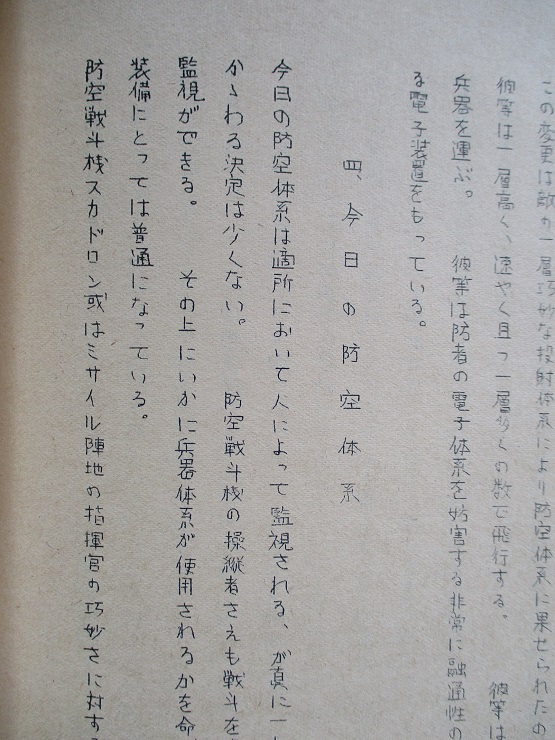 この変更は敵が一層巧妙な投射体系により防空体系に果せられたの
彼等は一層高く、速やく且つ一層多くの数で飛行する。　彼等は
兵器を運ぶ。　彼等は防者の電子体系を妨害する非常に融通性の
る電子装置をもっている。
四、今日の防空体系
今日の防空体系は適所において人によって監視される、が真に一
かゝわる決定は少くない。　防空戦斗桟の操縦者さえも戦斗を
監視ができる。　その上にいかに兵器体系が使用されるかを命
装備にとっては普通になっている。
防空戦斗桟スカドロン或はミサイル陣地の指揮官の巧妙さに対する